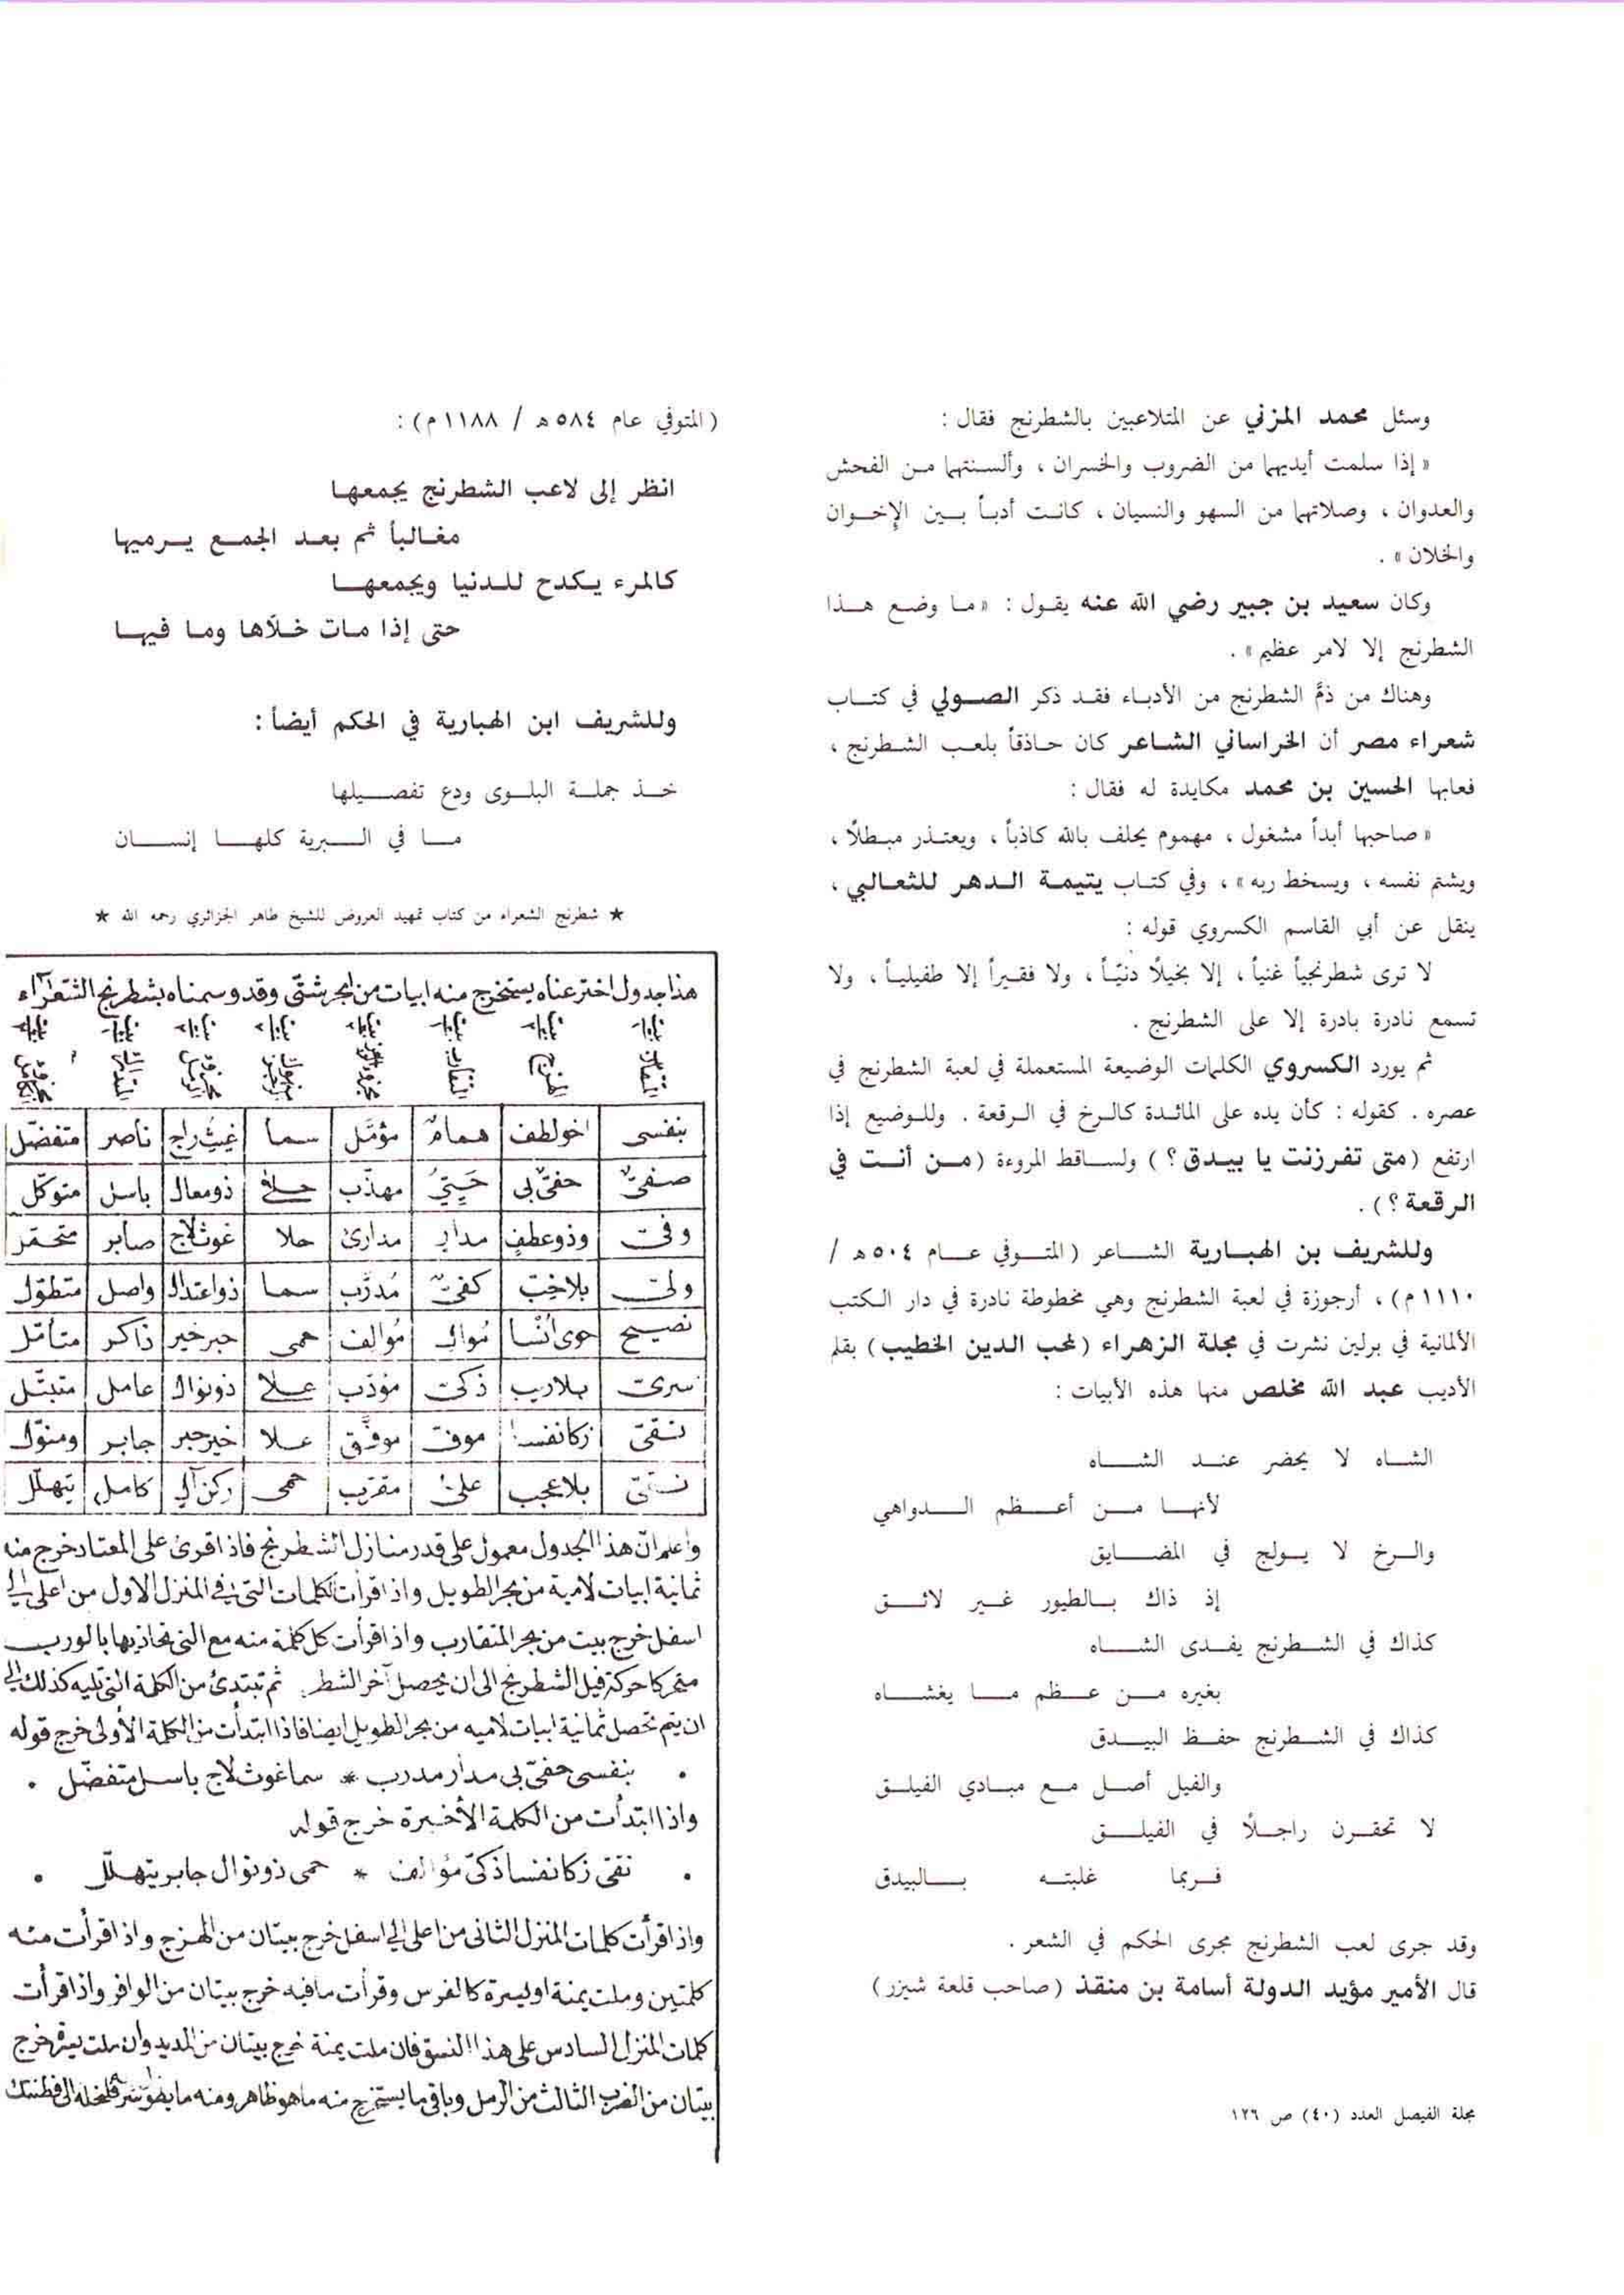 وسئل محمد المزني عن المتلاعبين بالشطرنج فقال :
« إذا سلمت أيديهما من الضروب والخسران ، وألسنتهما من الفحش
والعدوان ، وصلاتهما من السهو والنسيان ، كانت أدباً بين الإخوان
والخلان » .
وكان سعيد بن جبير رضي الله عنه يقول : « ما وضع هذا
الشطرنج إلا لامر عظيم » .
وهناك من ذمَّ الشطرنج من الأدباء فقد ذكر الصولي في كتاب
شعراء مصر أن الخراساني الشاعر كان حاذقاً بلعب الشطرنج ،
فعابها الحسين بن محمد مكايدة له فقال :
« صاحبها أبداً مشغول ، مهموم يحلف بالله كاذباً ، ويعتذر مبطلاً ،
ويشتم نفسه ، ويسخط ربه » ، وفي كتاب يتيمة الدهر للثعالبي ،
ينقل عن أبي القاسم الكسروي قوله :
لا ترى شطرنجياً غنياً ، إلا بخيلاً دنيّاً ، ولا فقيراً إلا طفيلياً ، ولا
تسمع نادرة بادرة إلا على الشطرنج .
ثم يورد الكسروي الكلمات الوضيعة المستعملة في لعبة الشطرنج في
عصره . كقوله : كأن يده على المائدة كالرخ في الرقعة . وللوضيع إذا
ارتفع ( متى تفرزنت يا بيدق ؟ ) ولساقط المروءة ( من أنت في
الرقعة ؟ ) .
وللشريف بن الهبارية الشاعر ( المتوفي عام ٥٠٤ هـ /
١١١٠ م ) ، أرجوزة في لعبة الشطرنج وهي مخطوطة نادرة في دار الكتب
الألمانية في برلين نشرت في مجلة الزهراء ( لمحب الدين الخطيب ) بقلم
الأديب عبد الله مخلص منها هذه الأبيات :
الشاه لا يحضر عند الشاه
لأنها من أعظم الدواهي
والرخ لا يولج في المضايق
إذ ذاك بالطيور غير لائق
كذاك في الشطرنج يفدى الشاه
بغيره من عظم ما يغشاه
كذاك في الشطرنج حفظ البيدق
والفيل أصل مع مبادي الفيلق
لا تحقرن راجلاً في الفيلق
فربما غلبته بالبيدق
وقد جرى لعب الشطرنج مجرى الحكم في الشعر .
قال الأمير مؤيد الدولة أسامة بن منقذ ( صاحب قلعة شيزر )
مجلة الفيصل العدد (٤٠) ص ١٢٦
( المتوفي عام ٥٨٤ هـ / ١١٨٨ م ) :
انظر إلى لاعب الشطرنج يجمعها
مغالباً ثم بعد الجمع يرميها
كالمرء يكدح للدنيا ويجمعها
حتى إذا مات خلاّها وما فيها
وللشريف ابن الهبارية في الحكم أيضاً :
خذ جملة البلوى ودع تفصيلها
ما في البرية كلها إنسان
★ شطرنج الشعراء من كتاب تمهيد العروض للشيخ طاهر الجزائري رحمه الله ★
هذا جدول اخترعناه يستخرج منه ابيات من ابحر شتّى وقد وسمناه بشطرنج الشعراء
بنفسى اخو لطف همام مؤمّل سما غيث راج ناصر متفضّل
صفىّ حفىّ بى حيىّ مهذّب حلا ذو معال باسل متوكّل
وفىّ وذو عطف مدار مدارئ حلا غوث لاج صابر متحمّر
ولىّ بلا خبّ كفىّ مُدرَّب سما ذو اعتدال واصل متطوّل
نصيح حوى اُنسا مُوال مُوالف حمى حبر خير ذاكر متأمّل
سرىّ بلا ريب ذكىّ مؤدّب علا ذو نوال عامل متبتّل
نقىّ زكا نفسا موفّ موفَّق علا خير حبر جابر ومنوّل
تقىّ بلا عجب علىّ مقرّب حمى ركن آل كامل يتهلّل
واعلم انّ هذا الجدول معمول على قدر منازل الشطرنج فاذا قرئ على المعتاد خرج منه
ثمانية ابيات لامية من بحر الطويل واذا قرأت الكلمات التى فى المنزل الاول من اعلى الى
اسفل خرج بيت من بحر المتقارب واذا قرأت كل كلمة منه مع التى تحاذيها بالورب
متحركا حركة فيل الشطرنج الى ان يحصل آخر الشطر ثم تبتدئ من الكلمة التى تليه كذلك الى
ان يتم تحصل ثمانية ابيات لاميه من بحر الطويل ايضا فاذا ابتدأت من الكلمة الأولى خرج قوله
٠ بنفسى حفىّ بى مدار مدرب * سما غوث لاج باسل متفضّل ٠
واذا ابتدأت من الكلمة الأخيرة خرج قوله
٠ نقىّ زكا نفسا ذكىّ مؤالف * حمى ذو نوال جابر يتهلّل ٠
واذا قرأت كلمات المنزل الثانى من اعلى الى اسفل خرج بيتان من الهزج واذا قرأت منه
كلمتين وملت يمنة او يسرة كالفرس وقرأت ما فيه خرج بيتان من الوافر واذا قرأت
كلمات المنزل السادس على هذا النسق فان ملت يمنة خرج بيتان من المديد وان ملت يسرة خرج
بيتان من الضرب الثالث من الرمل وباقى ما يستخرج منه ما هو ظاهر ومنه ما الى فطنتك